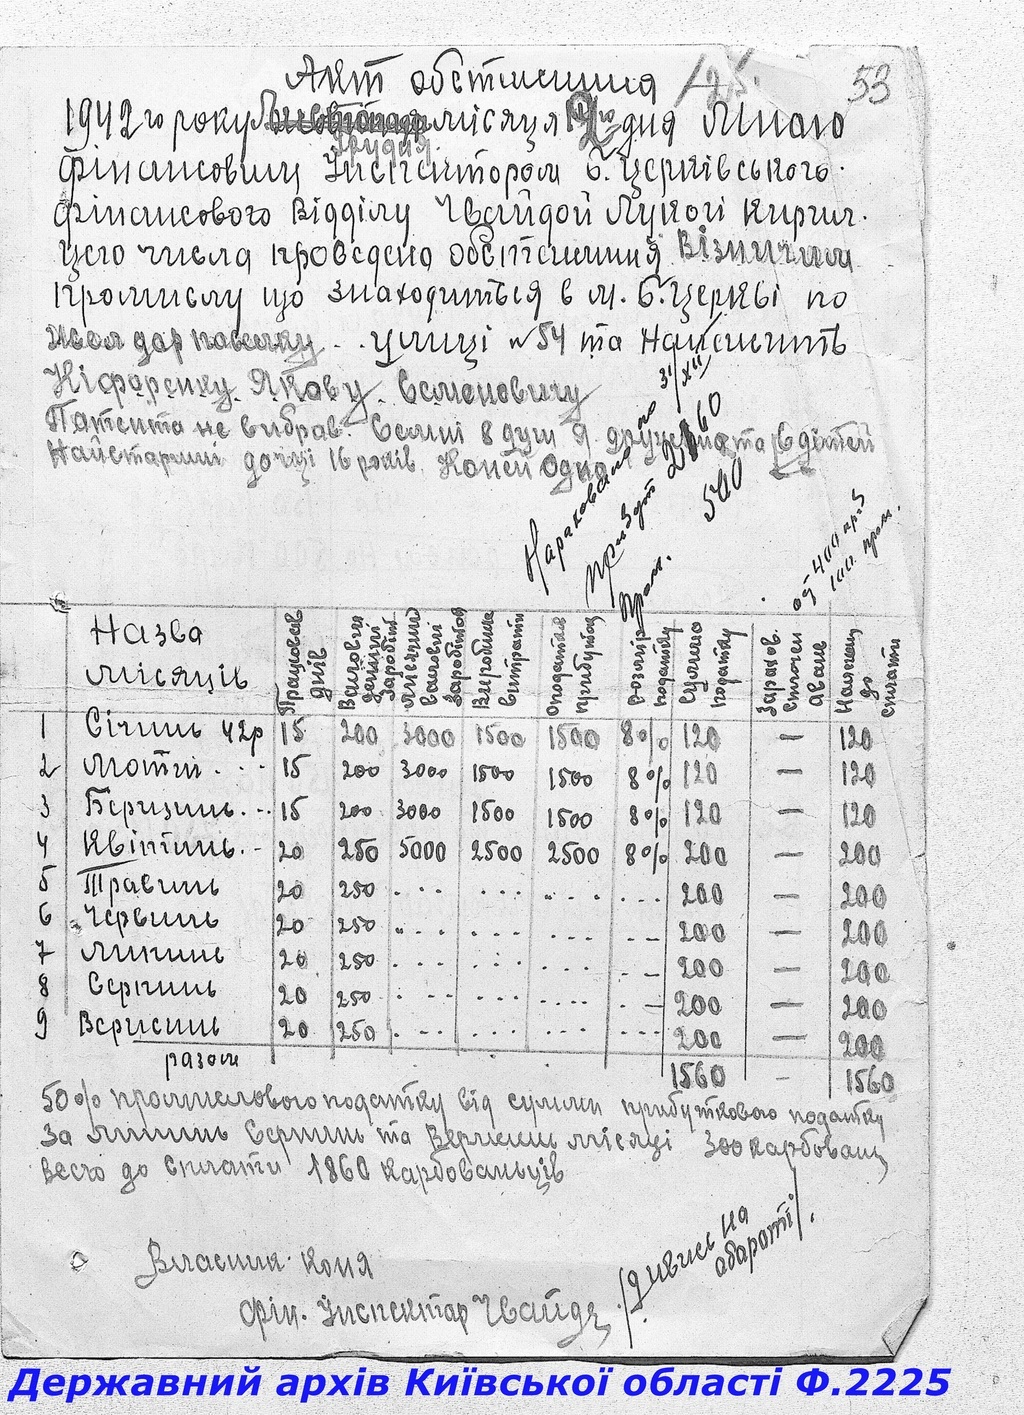 Акт обстеження
53
1942го року місяця 2го дня Мною
грудня
Фінансовим Інспектором Б. Церківського
Фінансового Відділу Чвайдой Лукої Кирил.
цего числа проведено обстеження Візничим
промислу що знаходиться в м. Б. Церкві по
улиці №54 та належить
Ніфаренку Якову Семеновичу
Патента не вибрав. Семні 8 душ Я дружина та 6 дітей
Найстарший дочці 16 років. Коней одна
Нараховано по 31/XII
прибут 2160
Пром. 500
од 400 пр.
100 пром.
Назва місяців | Працював днів | Валовий денний заробіт. | Місячний валовий заробіток | Виробнич витрати | Оподатк прибуток | Розмір податку | Сумма податку | Зарахов. сплочен аванс | Належить до сплати
1 Січинь 42р 15 200 3000 1500 1500 8% 120 — 120
2 Лютий . . . 15 200 3000 1500 1500 8% 120 — 120
3 Березинь. . . 15 200 3000 1500 1500 8% 120 — 120
4 Квітинь. . 20 250 5000 2500 2500 8% 200 — 200
5 Травинь 20 250 . . . . . . . . . . . . 200 — 200
6 Червинь 20 250 . . . . . . . . . . . . 200 — 200
7 Липинь 20 250 . . . . . . . . . . . . 200 — 200
8 Серпинь 20 250 . . . . . . . . . . . . 200 — 200
9 Верисинь 20 250 . . . . . . . . . . . . 200 — 200
разом 1560 - 1560
50% промислового податку від сумми прибуткового податку
За Липинь Серпинь та Верисинь місяці 300 карбованц
Всего до сплати 1860 карбованьців
Власник коня
Фін. Інспектар Чвайда
/дивись на
абараті/.
Державний архів Київської області Ф.2225